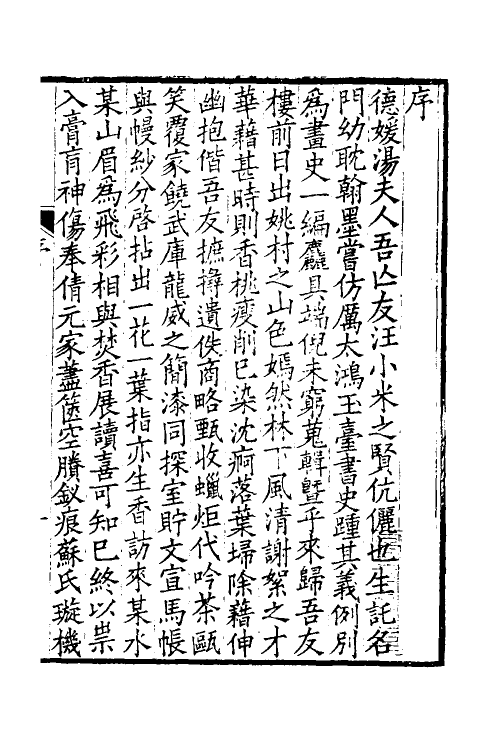 序
德媛湯夫人吾亡友汪小米之賢伉儷也生託名
門幼耽翰墨嘗仿厲太鴻玉臺書史踵其義例別
爲畫史一編麤具端倪未窮蒐輯曁乎來歸吾友
樓前日出姚村之山色嫣然林下風清謝絮之才
華藉甚時則香桃瘦削已染沈痾落葉埽除藉伸
幽抱偕吾友摭撏遺佚商略甄收蠟炬代吟茶甌
笑覆家饒武庫龍威之簡漆同探室貯文宣馬帳
與幔紗分啓拈出一花一葉指亦生香訪來某水
某山眉爲飛彩相與焚香展讀喜可知巳終以祟
入膏肓神傷奉倩元家藎篋空賸釵痕蘇氏璇機